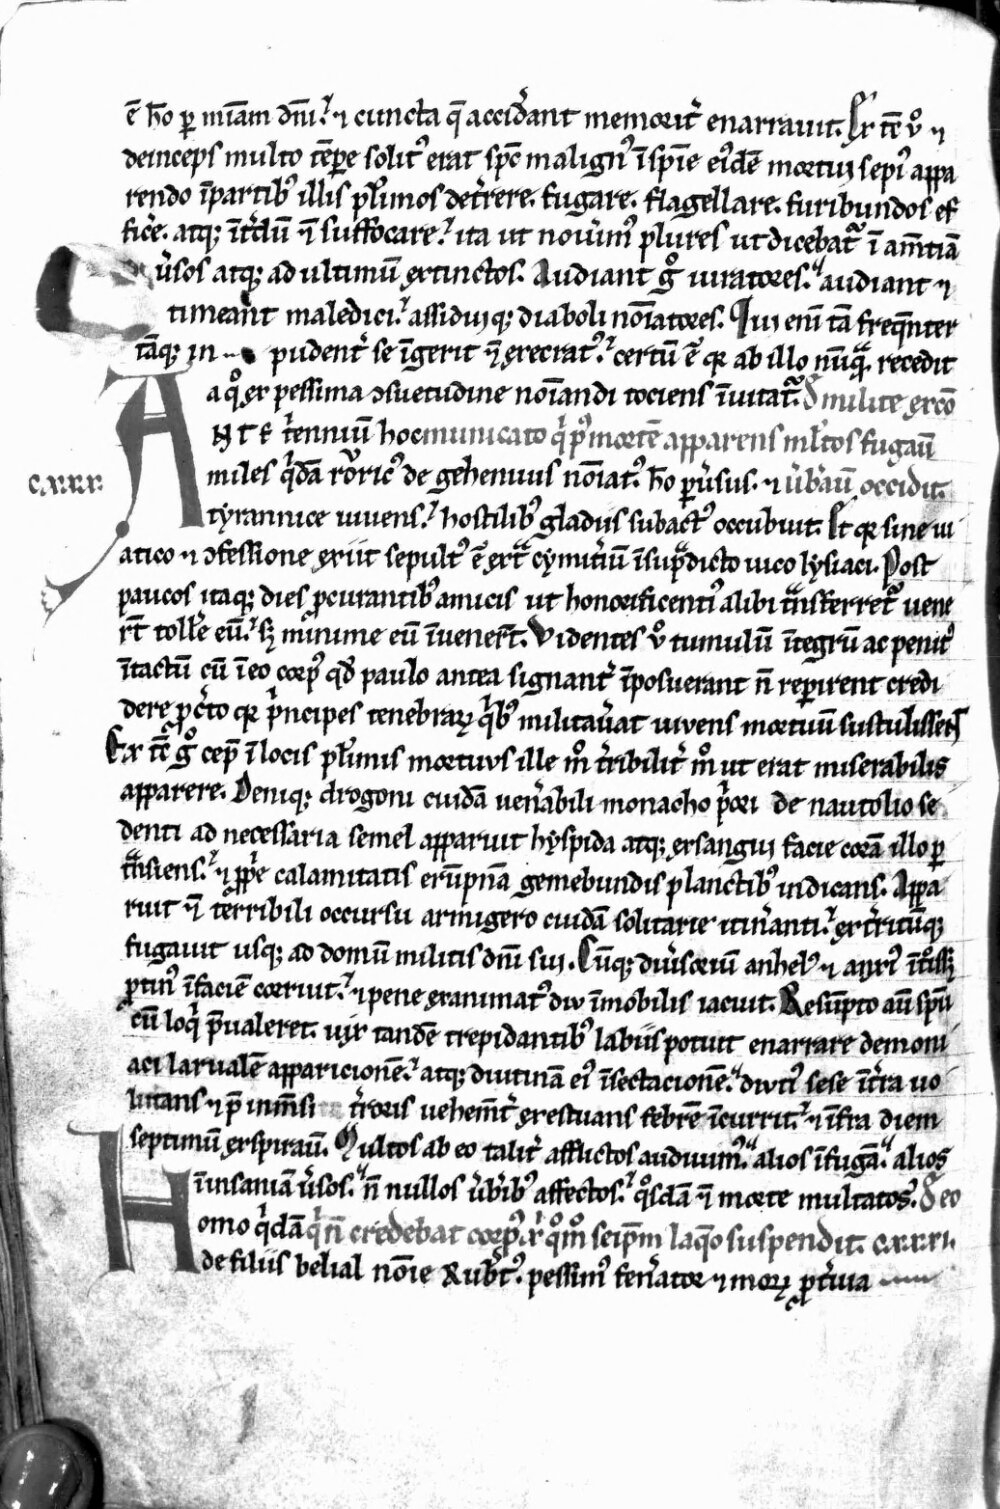 ē hō ꝑ miām dn̄i. ⁊ cuncta q̄ acciderant memorit̾ enarrauit. Ex tē ů ⁊
deinceps multo tēpe solit᷒ erat spc̄ malign᷒ ī spīe ei᷒dē mortui sepi᷒ appa
rendo ī partib᷒ illis pl̾imos det̾rere. fugare. flagellare. furibundos ef
fice. atq; īt̾dū ⁊ suffocare. ita ut nouim᷒ plures ut dicebat᷑ ī amētiā
ůsos atq; ad ultimū extinctos. Audiant g̊ iuratores. audiant ⁊
timeant maledici. assiduiq; diaboli noīatores. Qui enī tā freq̄nter
tāq; in pudent̾ se īgerit ⁊ execrat᷒. certū ē qr ab illo nūq̄ recedit
a q̊ ex pessima ɔsuetudine noīandi tociens īuitat᷑. de milite exco
NTE t̾ennium hoc municato q̇ p᷒ mortē apparens ml̾tos fugau̅
miles q̇dā roric᷒ de gehennis noīat᷒. hō ꝑůsus. ⁊ ůbau̅ occidit.
c.xxx.
tyrannice uiuens. hostilib᷒ gladiis subact᷒ occubuit. Et qr sine ui
atico ⁊ ɔfessione exiit sepult᷒ ē ext̾ cymit̾iū ī sup̾dicto uico lysiaci. Post
paucos itaq; dies ꝓcurantib᷒ amicis ut honorificenti᷒ alibi t̾nsferret᷑ uene
rt̄ toll̾e eū. s; minime eū īuener̄t. Videntes ů tumulū ītegrū ac penit᷒
ītactū cū ī eo corp᷒ qd̾ paulo antea signant̾ īposuerant n̄ reperirent credi
dere ꝓc̾to qr p̾ncipes tenebraꝝ q̇b᷒ militau̾at uiuens mortuū sustulissent
Ex tē g̊ cep̄ ī locis pl̾imis mortuus ille m̊ t̾ribilit̾ m̊ ut erat miserabilis
apparere. Deniq; drogoni cuidā uen̾abili monacho p̾ori de nantolio se
denti ad necessaria semel apparuit hyspida atq; exsangui facie corā illo ꝑ
t̾nsiens. ⁊ ꝓp̾e calamitatis erūpnā gemebundis planctib᷒ indicans. Appa
ruit ⁊ terribili occursu armigero cuidā solitarie itin̾anti. ext̾ritūq;
fugauit usq; ad domū militis dn̄i sui. Cūq; diu̾soriū anhel᷒ ⁊
ꝓtin᷒ ī faciē corruit. ⁊ pene exanimat᷒ diu īmobilis iacuit. Resūpto aū spū
cū loq̇ p̄ualeret. uix tandē trepidantib᷒ labiis potuit enarrare demoni
aci larualē apparicionē. atq; diutinā ei᷒ īsectacionē. diuti᷒ sese īt̾ra uo
lutans ⁊ p̄ inm̄si t̾roris uehem̄t̾ exestuans febrē īcurrit. ⁊ infra diem
septimū expirau̅. Multos ab eo talit̾ afflictos audiuim᷒. alios ī fugā. alios
ī insaniā ůsos. n̄ nullos ůb̾ib᷒ affectos. q̊sdā ⁊ morte multatos. De eo
omo q̇dā q̇ n̄ credebat corp᷒ xr̾ q̊m̊ seip̄m laq̊o suspendit. c.xxxi.
de filiis belial noīe Rub̾t᷒. pessim᷒ fen̾ator ⁊ moꝝ ꝓt̾uia